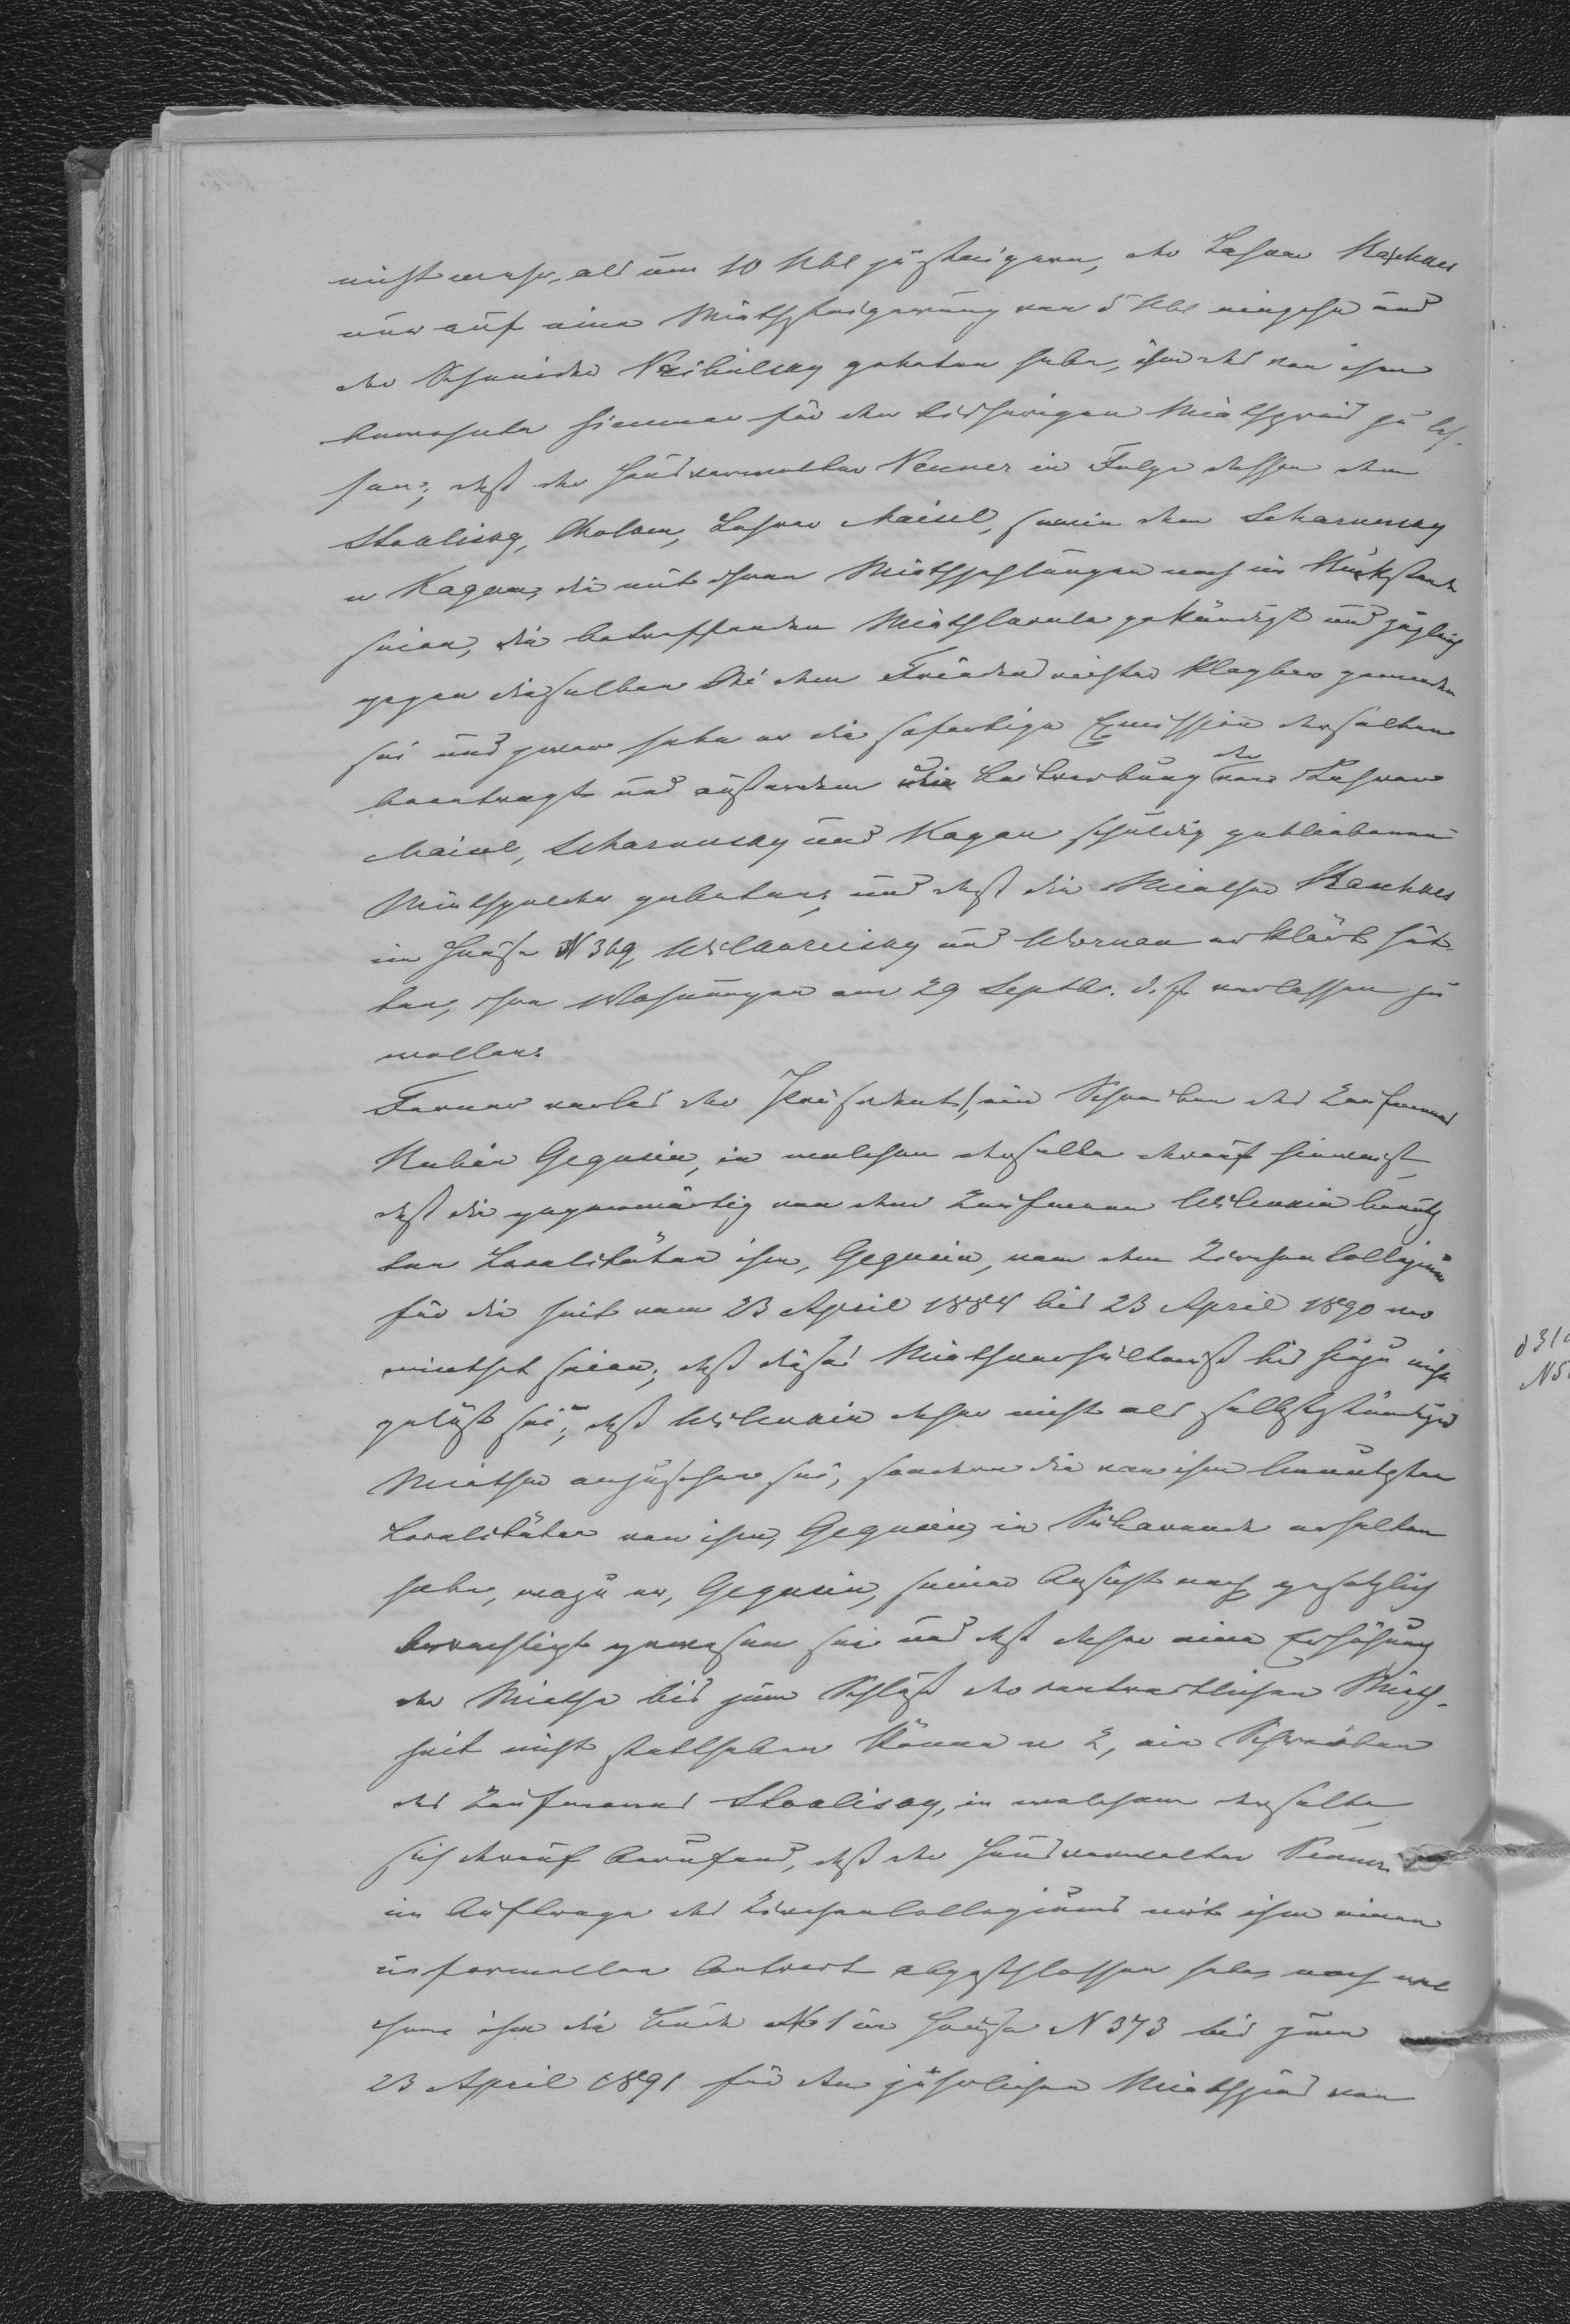 nicht mehr, als um 10 Rbl zu steigern, der Lehrer Raschkes
nur auf eine Miethsteigerung von 5 Rbl eingehe und
der Schneider Nezibilsky gebeten habe, ihm das von ihm
bewohnte Zimmer für den bisherigen Miethspreis zu las-
sen; daß der Hausverwalter Nenner in Folge dessen dem
Stoklisky, Cholem, Lehrer Maisel, sowie dem Scharensky
u Kagan, die mit ihren Miethzahlungen noch im Rückstande
seien, die betreffenden Miethlocale gekündigt und zugleich
gegen dieselben bei dem Friedensrichter klagbar geworden
sei und zwar habe er die sofortige Exmission derselben
beantragt und außerdem die Beitreibung der von Lehrer
Maisel, Scharensky und Kagan schuldig gebliebenen
Miethgelder gebeten; und daß die Miether Raschkes
im Hause N 369, und erklärt hät-
ten, ihre Wohnungen am 29 Septbr. d. J. verlassen zu
wollen.
Ferner verlas der Präsident 1, ein Schreiben des Kaufmanns
Rubin Gegusin, in welchem derselbe darauf hinweist,
daß die gegenwärtig von dem Kaufmann Wilenkin benutz
ten Localitäten ihm, Gegusin, von dem Kirchencollegium
für die Zeit vom 23 April 1884 bis 23 April 1890 ver
miethet seien; daß dieses Miethverhältniß bis hiezu nicht
gelöst sei; daß Wilenkin daher nicht als selbstständiger
Miether anzusehen sei, sondern die von ihm benutzten
Localitäten von ihm, Gegusin, in Afterpacht erhalten
habe, wozu er, Gegusin, seiner Ansicht nach gesetzlich
berechtigt gewesen sei und daß daher eine Erhöhung
der Miethe bis zum Schluß der contractlichen Mieth-
zeit nicht statthaben könne u 2, ein Schreiben
des Kaufmanns Stoklisky, in welchem derselbe
sich darauf berufend, daß der Hausverwalter Nenner
im Auftrage des Kirchencollegiums mit ihm einen
informellen Contract abgeschlossen habe, nach wel
chem ihm die Bude N 1 im Hause N 373 bis zum
23 April 1891 für den jährlichen Miethzins von